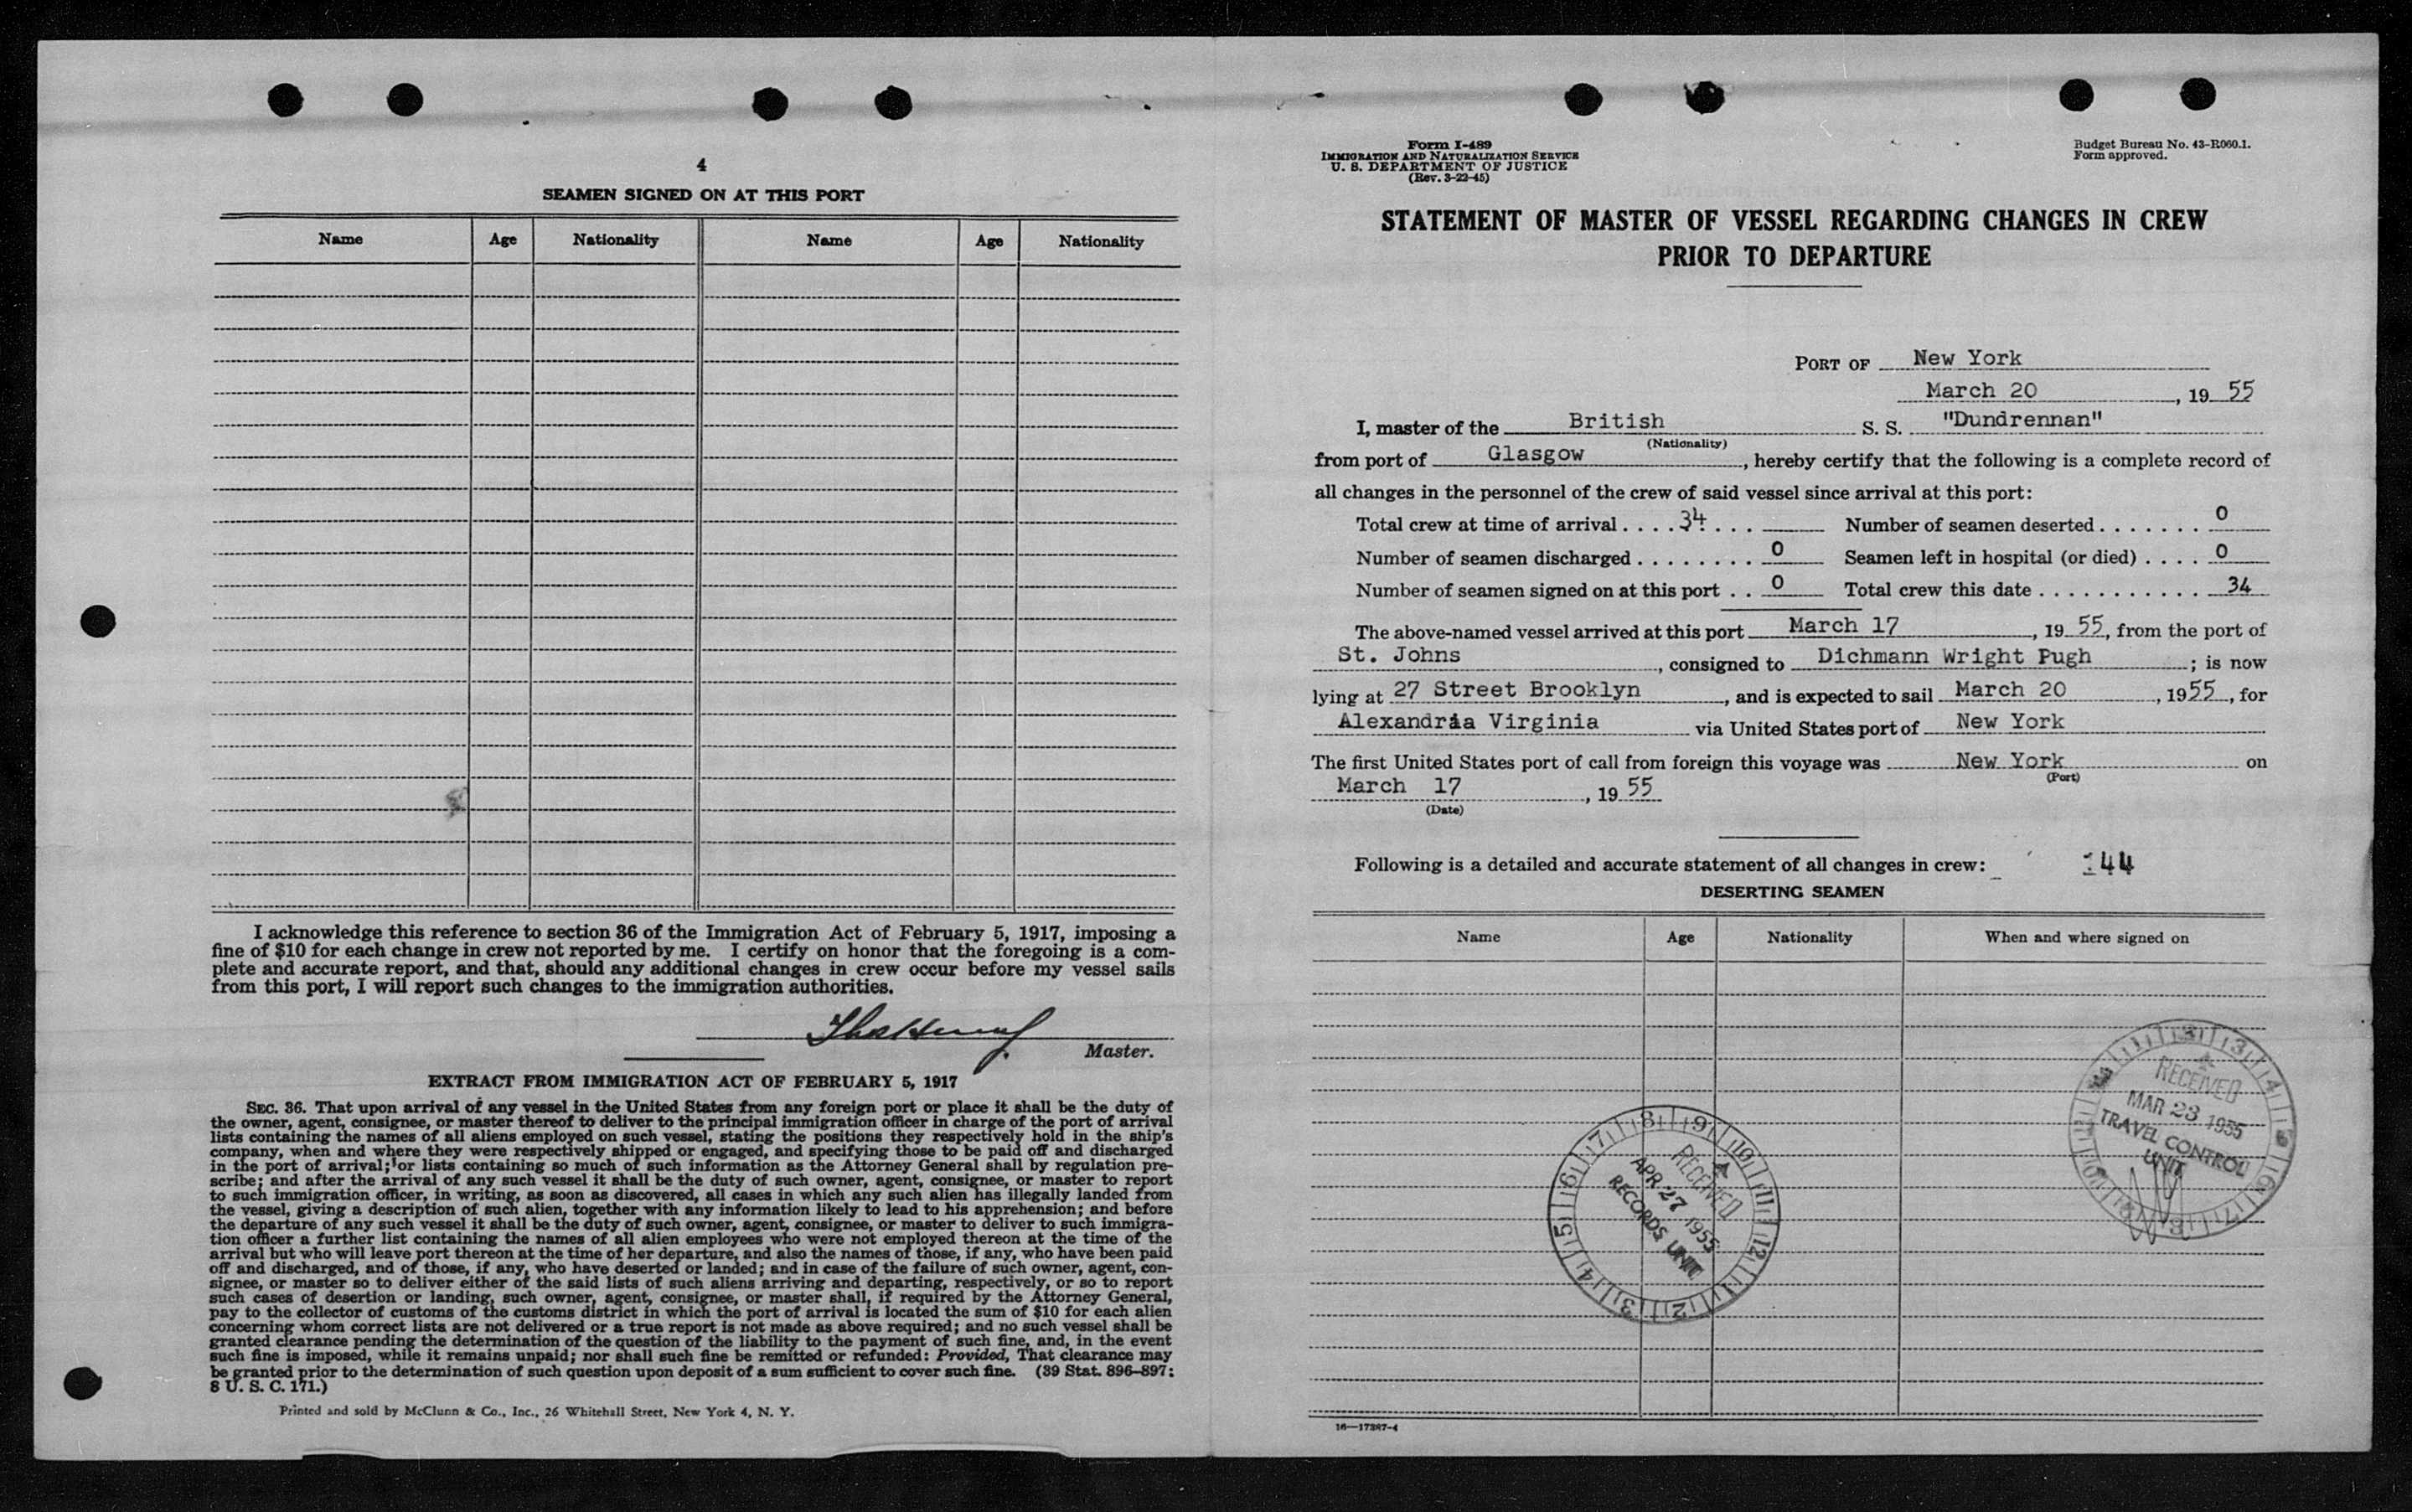 4
SEAMEN SIGNED ON AT THIS PORT
Name Age Nationality Name Age Nationality
I acknowledge this reference to section 36 of the Immigration Act of February 5, 1917, imposing a
fine of $10 for each change in crew not reported by me. I certify on honor that the foregoing is a com-
plete and accurate report, and that, should any additional changes in crew occur before my vessel sails
from this port, I will report such changes to the immigration authorities.
Master.
EXTRACT FROM IMMIGRATION ACT OF FEBRUARY 5, 1917
SEC. 36. That upon arrival of any vessel in the United States from any foreign port or place it shall be the duty of
the owner, agent, consignee, or master thereof to deliver to the principal immigration officer in charge of the port of arrival
lists containing the names of all aliens employed on such vessel, stating the positions they respectively hold in the ship's
company, when and where they were respectively shipped or engaged, and specifying those to be paid off and discharged
in the port of arrival; or lists containing so much of such information as the Attorney General shall by regulation pre-
scribe; and after the arrival of any such vessel it shall be the duty of such owner, agent, consignee, or master to report
to such immigration officer, in writing, as soon as discovered, all cases in which any such alien has illegally landed from
the vessel, giving a description of such alien, together with any information likely to lead to his apprehension; and before
the departure of any such vessel it shall be the duty of such owner, agent, consignee, or master to deliver to such immigra-
tion officer a further list containing the names of all alien employees who were not employed thereon at the time of the
arrival but who will leave port thereon at the time of her departure, and also the names of those, if any, who have been paid
off and discharged, and of those, if any, who have deserted or landed; and in case of the failure of such owner, agent, con-
signee, or master so to deliver either of the said lists of such aliens arriving and departing, respectively, or so to report
such cases of desertion or landing, such owner, agent, consignee, or master shall, if required by the Attorney General,
pay to the collector of customs of the customs district in which the port of arrival is located the sum of $10 for each alien
concerning whom correct lists are not delivered or a true report is not made as above required; and no such vessel shall be
granted clearance pending the determination of the question of the liability to the payment of such fine, and, in the event
such fine is imposed, while it remains unpaid; nor shall such fine be remitted or refunded: Provided, That clearance may
be granted prior to the determination of such question upon deposit of a sum sufficient to cover such fine. (39 Stat. 896-897;
8 U. S. C. 171.)
Printed and sold by McClunn & Co., Inc., 26 Whitehall Street, New York 4, N. Y.
Form I-489
IMMIGRATION AND NATURALIZATION SERVICE
U. S. DEPARTMENT OF JUSTICE
(Rev. 3-22-45)
Budget Bureau No. 43-R060.1.
Form approved.
STATEMENT OF MASTER OF VESSEL REGARDING CHANGES IN CREW
PRIOR TO DEPARTURE
PORT OF New York
March 20, 1955
I, master of the British S. S. "Dundrennan"
(Nationality)
from port of Glasgow, hereby certify that the following is a complete record of
all changes in the personnel of the crew of said vessel since arrival at this port:
Total crew at time of arrival .... 34 ... Number of seamen deserted ....... 0
Number of seamen discharged ........ 0 Seamen left in hospital (or died) .... 0
Number of seamen signed on at this port .. 0 Total crew this date ........... 34
The above-named vessel arrived at this port March 17, 1955, from the port of
St. Johns, consigned to Dichmann Wright Pugh; is now
lying at 27 Street Brooklyn, and is expected to sail March 20, 1955, for
Alexandria Virginia via United States port of New York
The first United States port of call from foreign this voyage was New York on
(Port)
March 17, 1955
(Date)
Following is a detailed and accurate statement of all changes in crew: 144
DESERTING SEAMEN
Name Age Nationality When and where signed on
RECEIVED
MAR 23 1955
TRAVEL CONTROL
UNIT
RECEIVED
APR 27 1955
RECORDS UNIT
16—17387-4